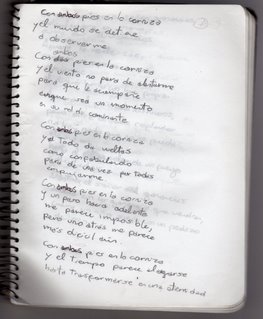 Con ambos pies en la cornisa
y el mundo se detiene
a observarme
ambos
Con dos pies en la cornisa
y el viento no para de alentarme
para que le acompañe
aunque sea un momento
en su rol de caminante
Con ambos pies en la cornisa
y el Todo da vueltas
como conspirando
para de una vez por todas
empujarme
Con ambos pies en la cornisa
y un paso hacia adelante
me parece imposible,
pero uno atrás me parece
más difícil aún.
Con ambos pies en la cornisa
y el tiempo parece alargarse
hasta transformarse en una eternidad